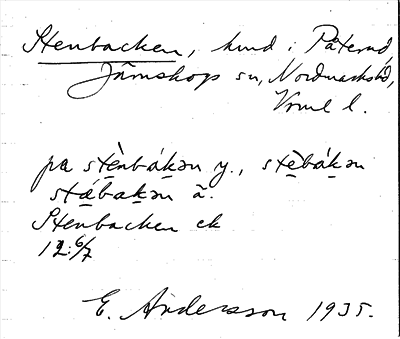 Stenbacken, hmd i Påterud,
Järnskogs sn, Nordmarks hd,
Vrml l.
pa stènbákən y., stèbákən
stábakən ä.
Stenbacken ek
12:6/7
E. Andersson 1935.